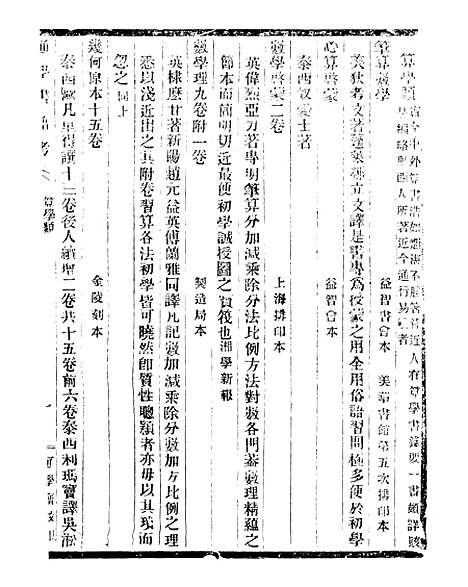 算學類古今中外算書浩如煙海不能著錄近人有算學書錄要一書頗詳賅
是編略舉西人所著近今通行易求者
筆算數學 益智書會本 美華書館第五次排印本
美狄考文著蓬萊鄒立文譯是書專為授蒙之用全用俗語習問極多便於初學
心算啓蒙 益智會本
泰西奴愛士著
數學啓蒙二卷 上海排印本
英偉烈亞力著專明筆算分加減乘除分法比例方法對數各門蓋數理精蘊之
節本而簡明切近最便初學誠授圖之寶筏也湘學新報
數學理九卷附一卷 製造局本
英棣麽甘著新陽趙元益英傅蘭雅同譯凡記數加減乘除分數加方比例之理
悉以淺近出之其附卷習算各法初學皆可曉然卽質性聰穎者亦毋以其淺而
忽之同上
幾何原本十五卷 金陵刻本
泰西歐几里得譔十三卷後人續增二卷共十五卷前六卷泰西利瑪竇譯吳淞
通學書籍考 算學類 一 通學齋校印